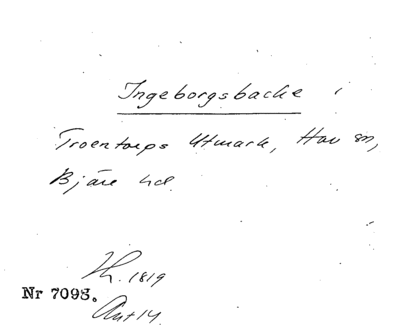 Ingeborgsbacke i
Troentorps Utmark, Hov sn,
Bjäre hd.
Th. 1819
Nr 7093.
Ant 14.